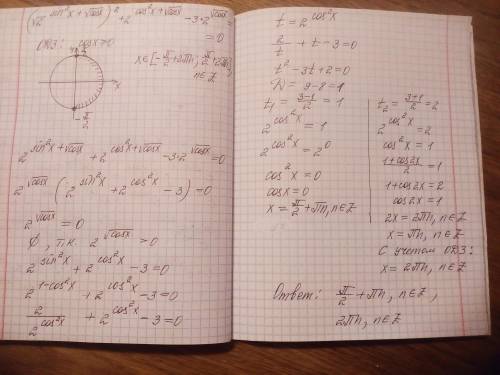 (√2^(sin²x+√cosx))² + 2^(cos²x+√cosx) - 3·2^√cosx =
= 0
ОДЗ: cosx ≥ 0
x∈[-π/2+2πn; π/2+2πn],
n∈Z
π/2
x
-π/2
2^(sin²x+√cosx) + 2^(cos²x+√cosx) - 3·2^√cosx = 0
2^√cosx (2^sin²x + 2^cos²x - 3) = 0
2^√cosx = 0
∅, т.к. 2^√cosx > 0
2^sin²x + 2^cos²x - 3 = 0
2^(1-cos²x) + 2^cos²x - 3 = 0
2/2^cos²x + 2^cos²x - 3 = 0
t = 2^cos²x
2/t + t - 3 = 0
t² - 3t + 2 = 0
D = 9 - 8 = 1
t₁ = (3-1)/2 = 1
2^cos²x = 1
2^cos²x = 2⁰
cos²x = 0
cosx = 0
x = π/2 + πn, n∈Z
t₂ = (3+1)/2 = 2
2^cos²x = 2
cos²x = 1
(1+cos2x)/2 = 1
1+cos2x = 2
cos2x = 1
2x = 2πn, n∈Z
x = πn, n∈Z
С учетом ОДЗ:
x = 2πn, n∈Z
Ответ: π/2 + πn, n∈Z,
2πn, n∈Z